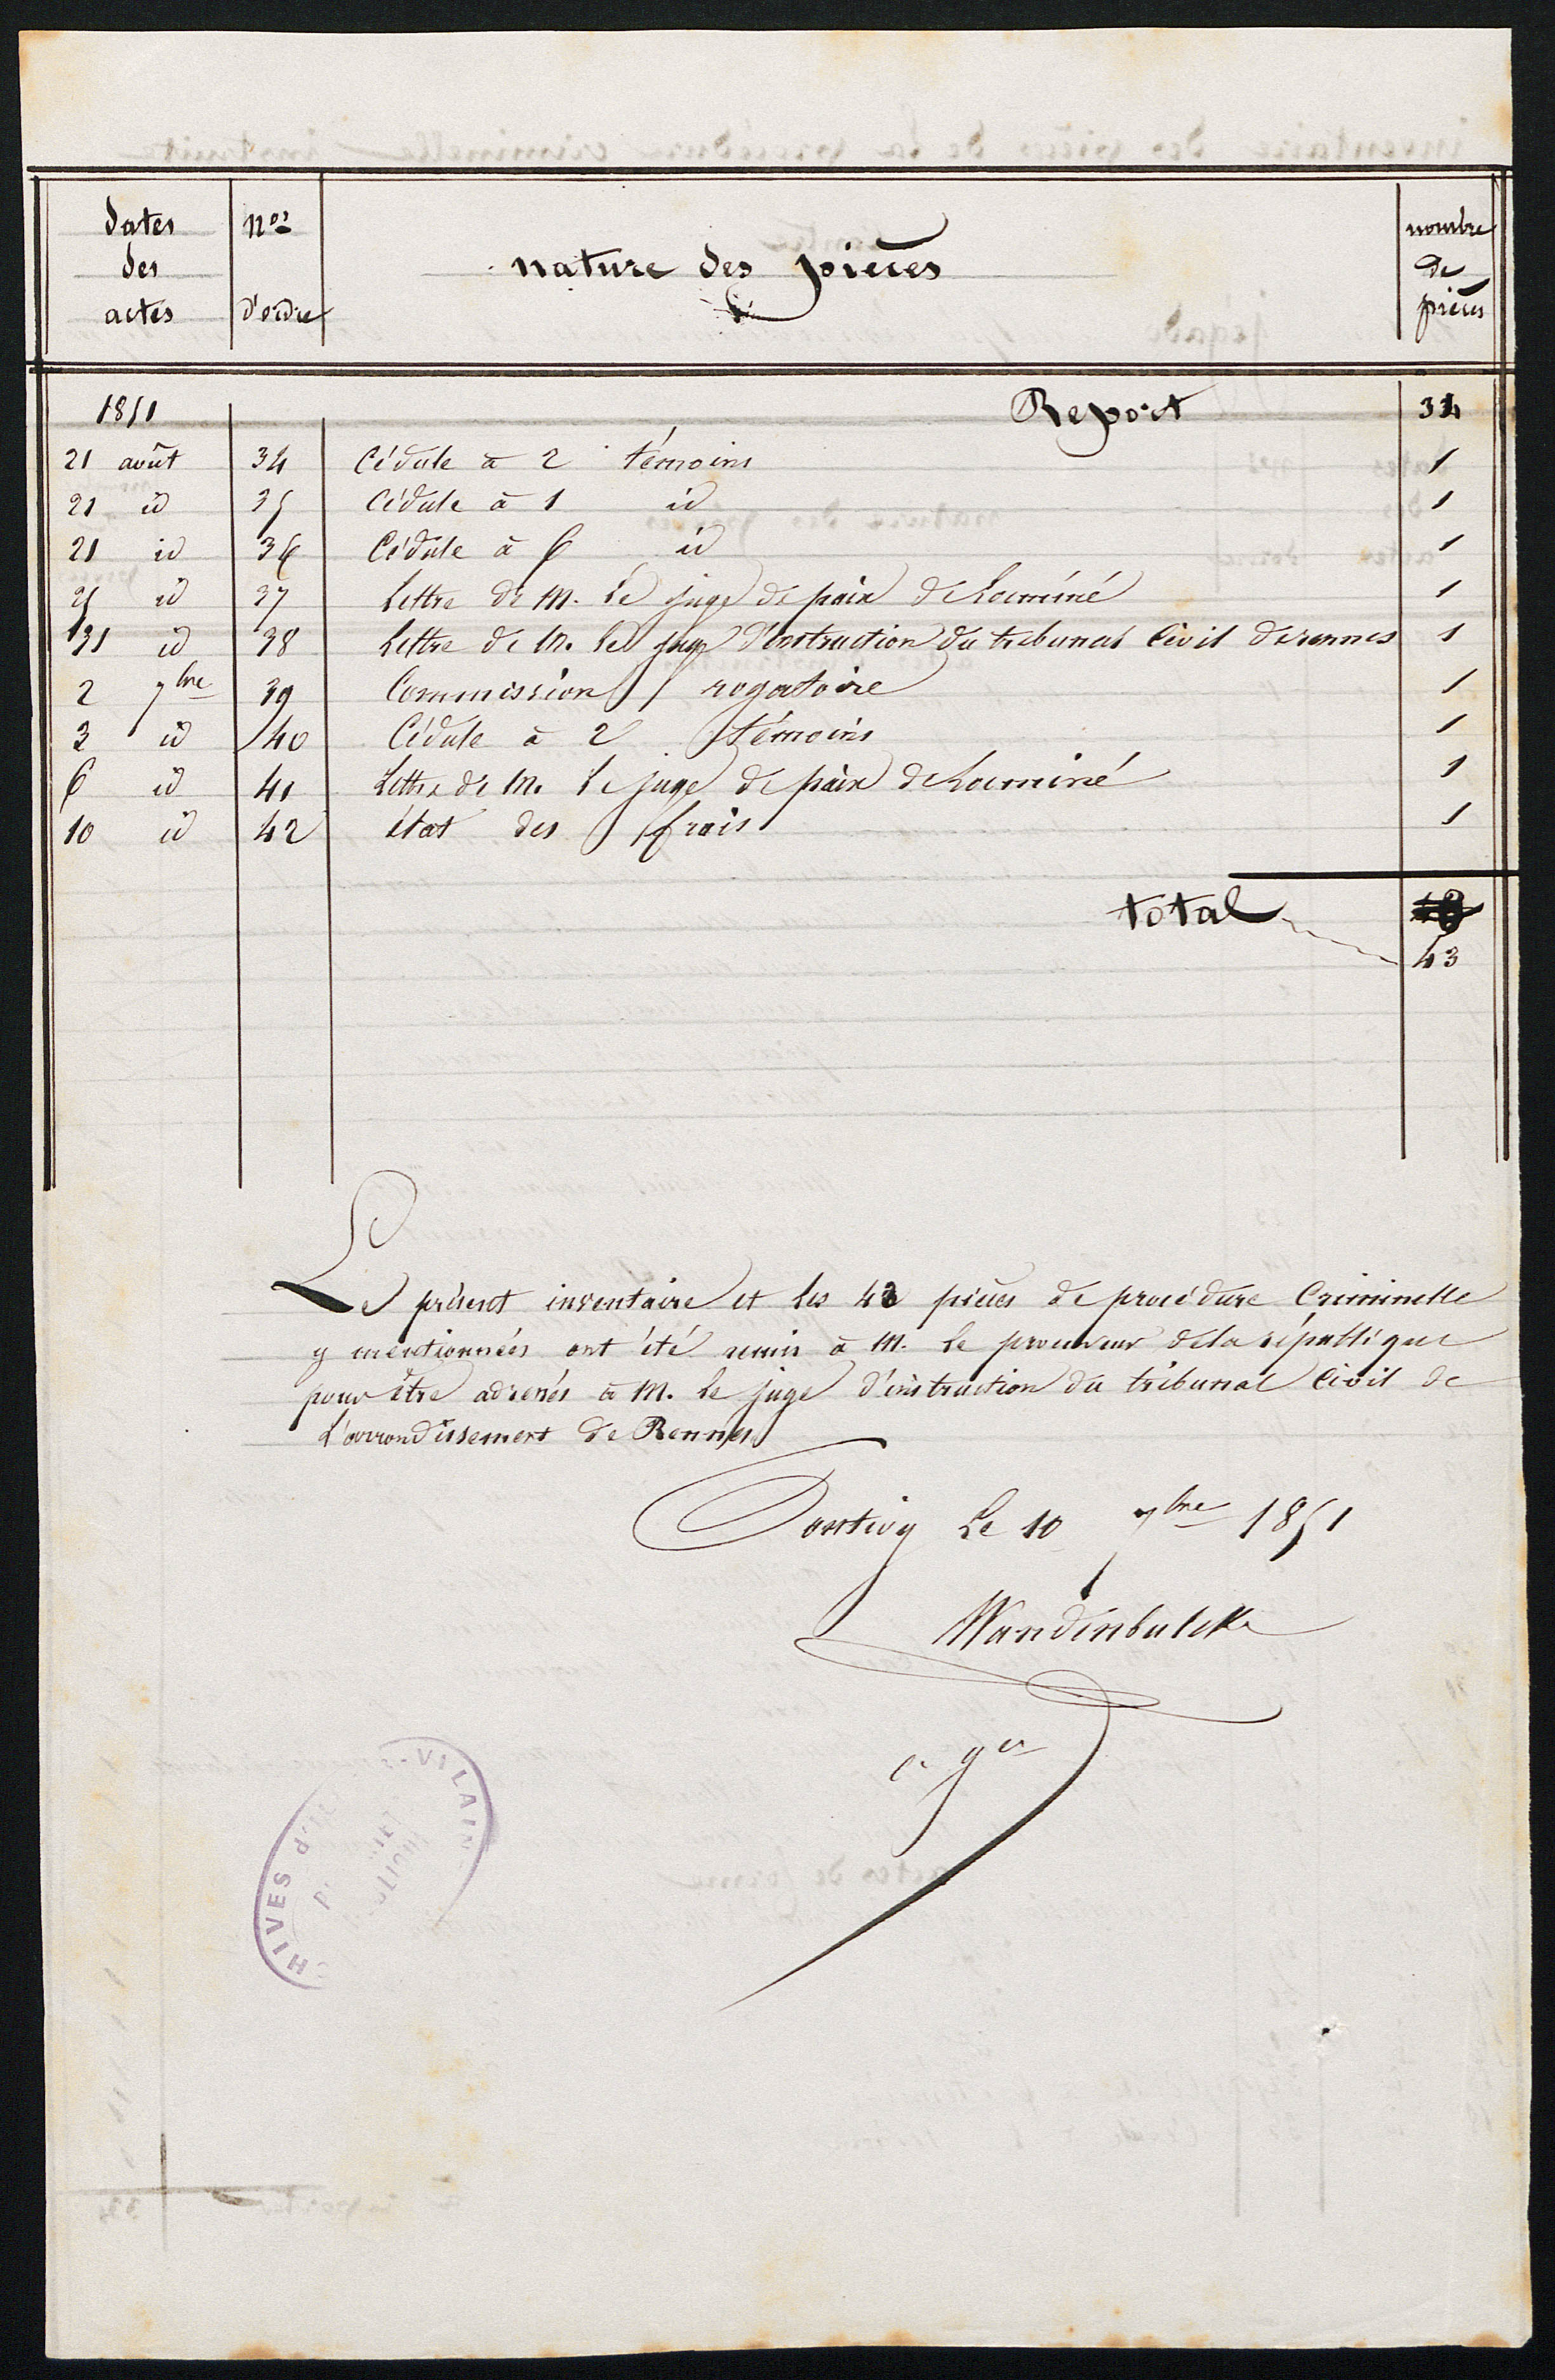 dates des actes nos d'ordre nature des pièces nombre de pièces
1851 Report 34
21 août 34 Cédule à 2 témoins 1
21 id 35 Cédule à 1 id 1
21 id 36 Cédule à 6 id 1
25 id 37 Lettre de M. le juge de paix de Locminé 1
31 id 38 Lettre de M. le juge d'instruction du tribunal Civil de rennes 1
2 7bre 39 Commission rogatoire 1
3 id 40 Cédule à 2 témoins 1
6 id 41 Lettre de M. le juge de paix de Locminé 1
10 id 42 état des frais 1
total
43
Le présent inventaire et les 43 pièces de procédure Criminelle
y mentionnées ont été remis à M. le procureur de la république
pour être adressés à M. le juge d'instruction du tribunal Civil de
L'arrondissement de Rennes
Pontivy le 10 7bre 1851
Wandenbulcke
c. ger
HIVES d' -VILAIN